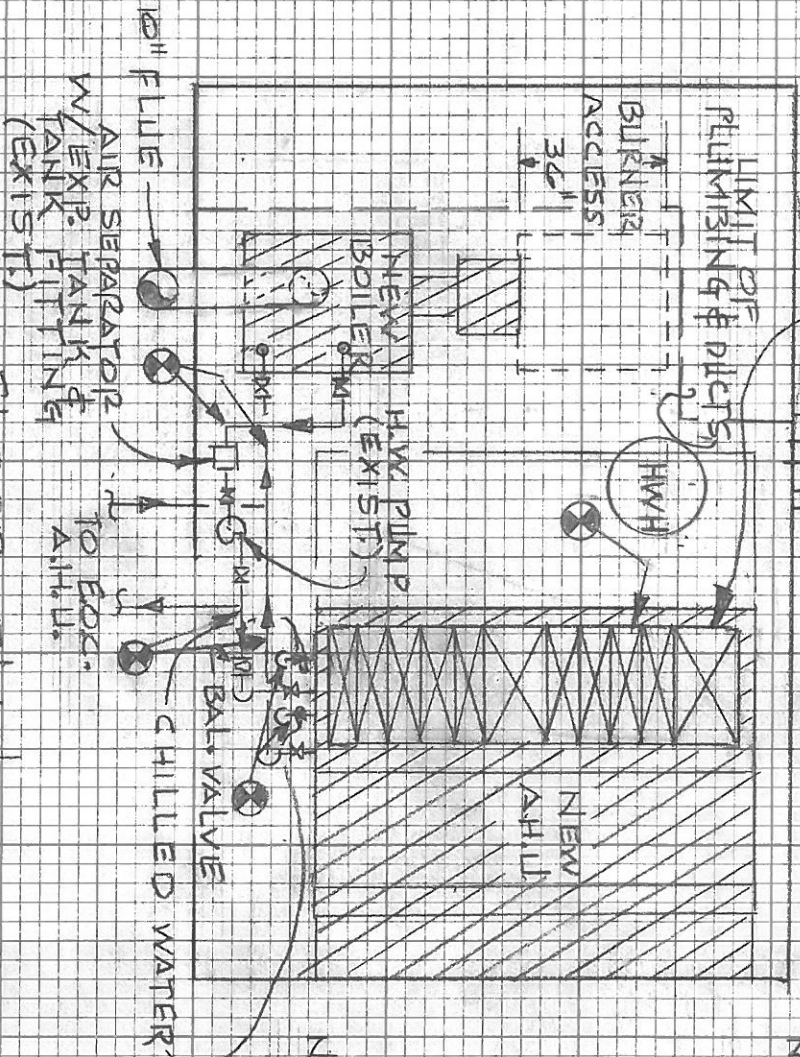 LIMIT OF
PLUMBING & DUCTS
BURNER
ACCESS
36"
NEW
BOILER
10" FLUE
AIR SEPARATOR
W/ EXP. TANK &
TANK FITTING
(EXIST.)
H.W. PUMP
(EXIST.)
HWH
TO EDC.
A.H.U.
BAL. VALVE
CHILLED WATER
NEW
A.H.U.